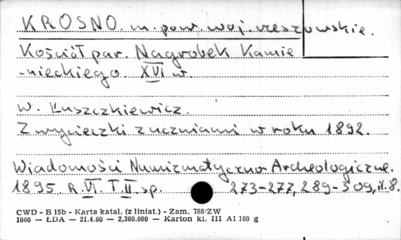 KROSNO. m. pow. woj. rzeszowskie.
Kościół par. Nagrobek Kamie
-nieckiego XVI w.
W. Łuszczkiewicz.
Z wycieczki z uczniami w roku 1892.
Wiadomości Numizmatyczno Archeologiczne.
1895. R. VI. T. II. sp. 273-277, 289-309, il. 8.
CWD - B 15b - Karta katal. (z liniat.) - Zam. 788/ZW
1060 — ŁDA — 21.4.60 — 2,360.000 — Karton kl. III A1 160 g